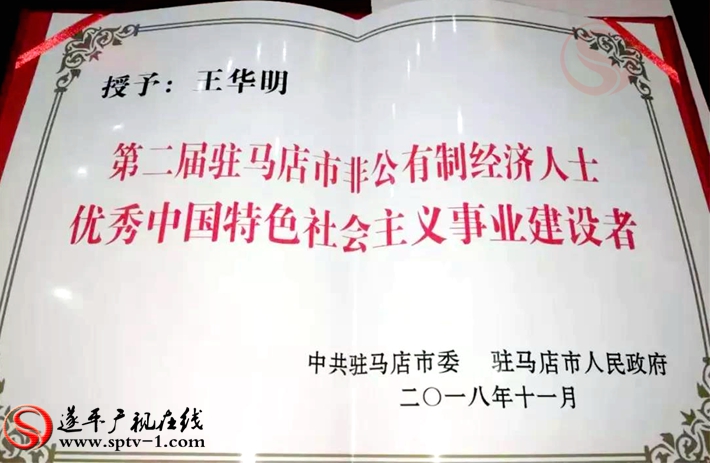 授予：王华明
第二届驻马店市非公有制经济人士
优秀中国特色社会主义事业建设者
中共驻马店市委 驻马店市人民政府
二〇一八年十一月
遂平广视在线
www.sptv-1.com